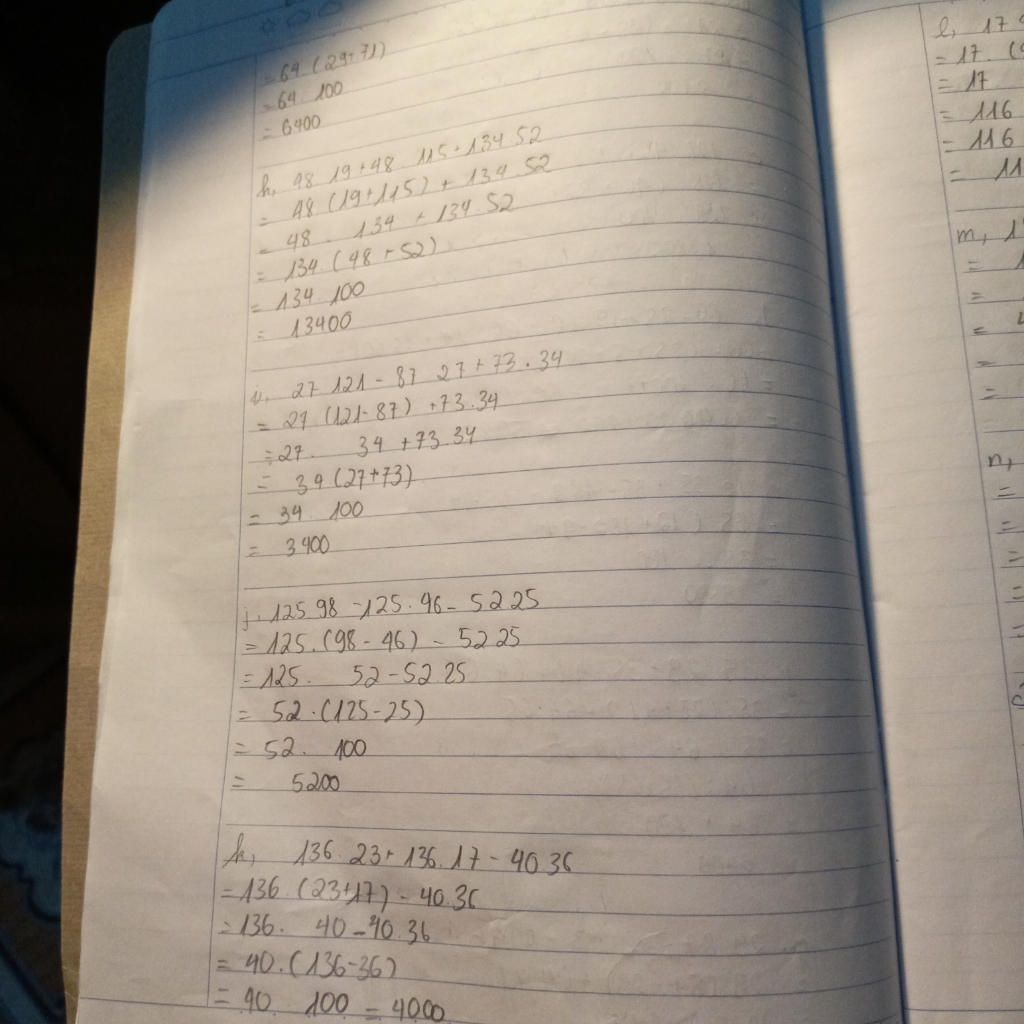 = 64.(29+71)
= 64 100
= 6400
h, 48 19+48 115+134 52
= 48 (19+115) + 134 52
= 48 . 134 + 134.52
= 134.(48+52)
= 134 100
= 13400
i, 27 121 - 87 27 + 73.34
= 27 (121-87) +73.34
= 27. 34 +73.34
= 34 (27+73)
= 34 100
= 3400
j, 125.98 -125.46 - 52 25
= 125.(98-46) - 52 25
= 125. 52-52.25
= 52.(125-25)
= 52. 100
= 5200
k, 136.23+136.17-40 36
= 136.(23+17) - 40.36
= 136. 40-40.36
= 40.(136-36)
= 40 100 = 4000
l, 17
= 17.
= 17
= 116
= 116
= 11
m, 1
= 1
=
= 4
=
=
n,
=
=
=
=
=